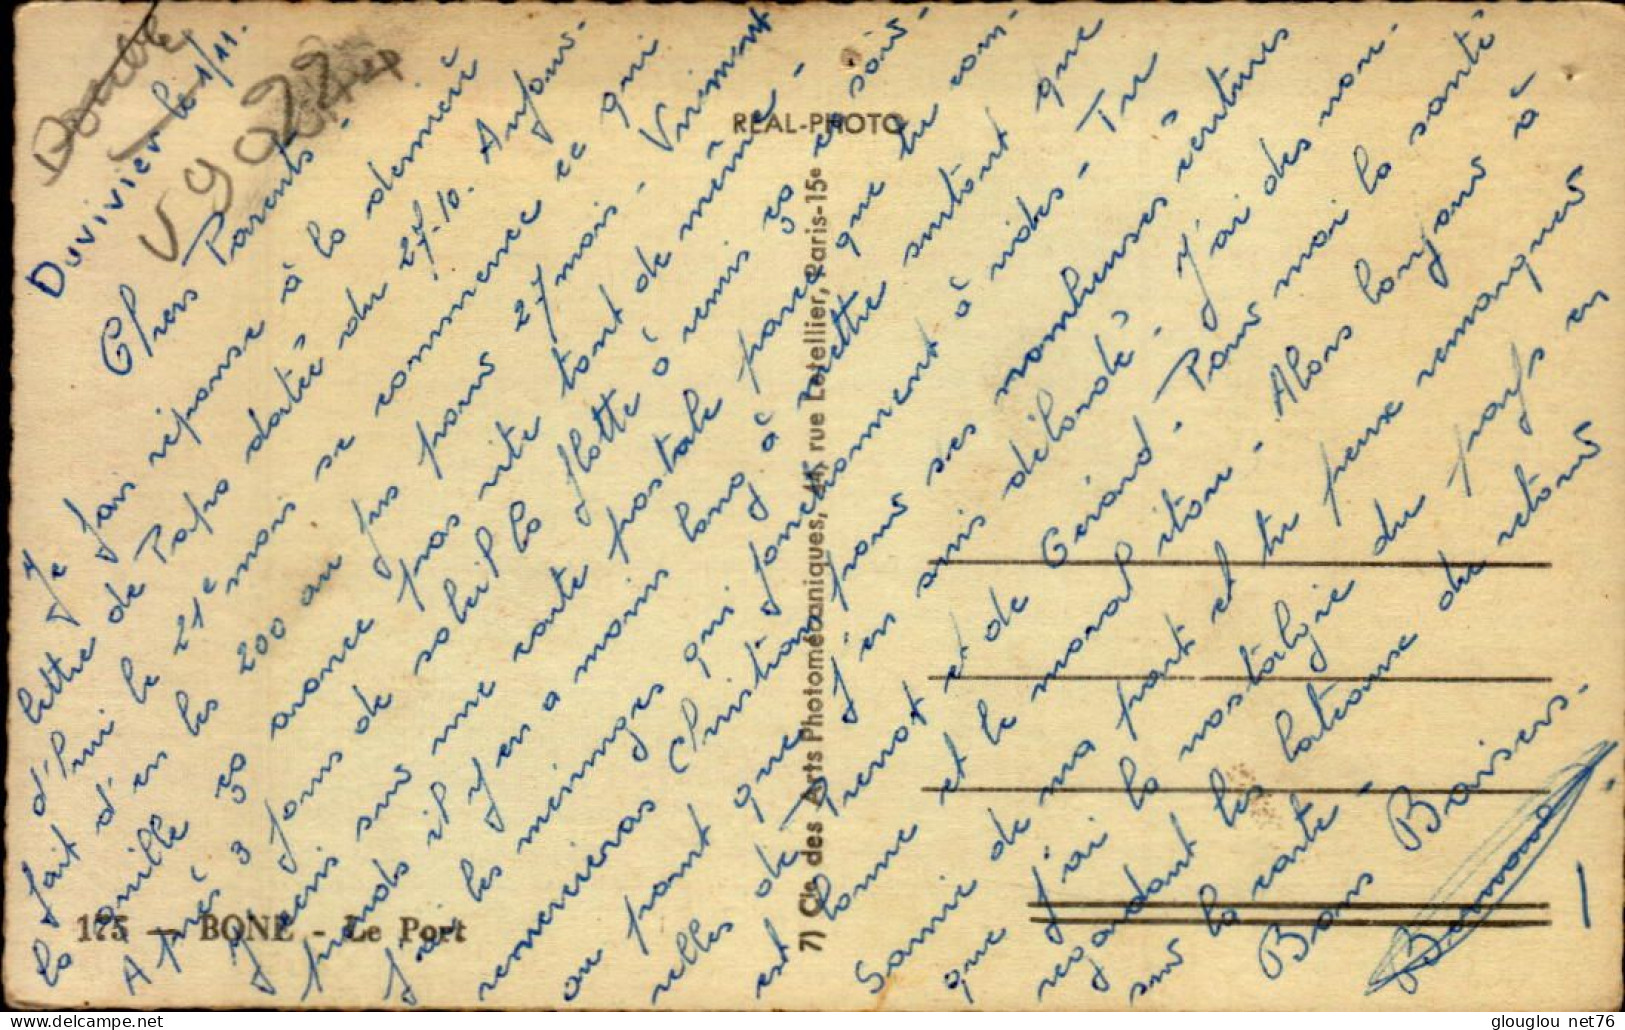 Double
V9092
Duvivier le 1/11.
Chers Parents -
Je fais réponse à la dernière
lettre de Papa datée du 27.10. Aujour-
d'hui le 21e mois se commence ce qui
fait d'en les 200 au jus pour 27 mois - Vriment
la famille ça avance pas vite tant de même -
Après 3 jours de soleil la flotte à remis ça ce soir
J'écris sur une carte postale parce que tu com-
prends il y en a moins long à mettre surtout que
j'ai les méninges qui fonctionnent à vides - Tu
remercieras Christian pour ses nombreuses lectures
au point que j'en suis débordé - J'ai des nou-
velles de Prenot et de Gérard - Pour moi la santé
est bonne et le moral itou - Alors bonjour à
Samie de ma part et tu peux remarquer
que j'ai la nostalgie du pays en
regardant les bateaux de retour
sur la carte -
Bons Baisers -
Bernard
175 — BONE - Le Port
REAL-PHOTO
7) Cie des Arts Photomécaniques, 44, rue Letellier, Paris-15e
glouglou net76